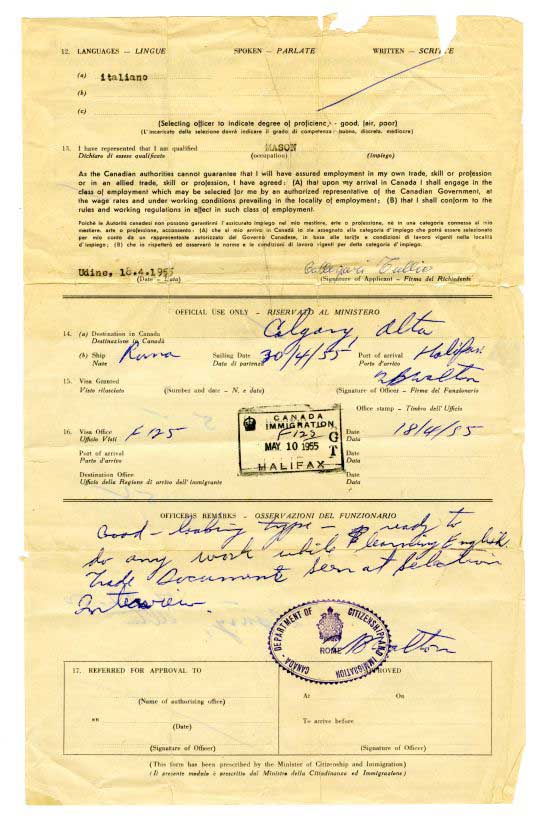 12. LANGUAGES — LINGUE SPOKEN — PARLATE WRITTEN — SCRITTE
(a) italiano
(b)
(c)
(Selecting officer to indicate degree of proficiency - good, fair, poor)
(L'incaricato della selezione dovrà indicare il grado di competenza: buona, discreta, mediocre)
13. I have represented that I am qualified MASON
Dichiaro di essere qualificato (occupation) (Impiego)
As the Canadian authorities cannot guarantee that I will have assured employment in my own trade, skill or profession
or in an allied trade, skill or profession, I have agreed : (A) that upon my arrival in Canada I shall engage in the
class of employment which may be selected for me by an authorized representative of the Canadian Government, at
the wage rates and under working conditions prevailing in the locality of employment; (B) that I shall conform to the
rules and working regulations in effect in such class of employment.
Poichè le Autorità canadesi non possono garantirmi l'assicurato impiego nel mio mestiere, arte o professione, nè in una categoria connessa al mio
mestiere, arte o professione, acconsento : (A) che al mio arrivo in Canadà io sia assegnato alla categoria d'impiego che potrà essere selezionata
per mio conto da un rappresentante autorizzato del Governo Canadese, in base alle tariffe e condizioni di lavoro vigenti nella località
d'impiego; (B) che io rispetterò ed osserverò le norme e le condizioni di lavoro vigenti per detta categoria d'impiego.
Udine, 18.4.1955 Callegari Tullio
(Date - Data) (Signature of Applicant - Firma del Richiedente
OFFICIAL USE ONLY - RISERVATO AL MINISTERO
14. (a) Destination in Canada Calgary, Alta
Destinazione in Canadà
(b) Ship Roma Sailing Date 30/4/55 Port of arrival Halifax
Nave Data di partenza Porto d'arrivo
15. Visa Granted Walton
Visto rilasciato (Number and date - N. e data) (Signature of Officer - Firma del Funzionario
Office stamp - Timbro dell'Ufficio
16. Visa Office F125 Date 18/4/55
Ufficio Visti Data
CANADA
IMMIGRATION
F125 G
MAY 10 1955 T
HALIFAX
Port of arrival Date
Porto d'arrivo Data
Destination Office Date
Ufficio della Regione di arrivo dell'immigrante Data
OFFICER'S REMARKS - OSSERVAZIONI DEL FUNZIONARIO
Good - looking type - ready to
do any work while learning English.
Trade Documents seen at Selection
Interview.
DEPARTMENT OF CITIZENSHIP AND IMMIGRATION · CANADA ·
ROME
Walton
17. REFERRED FOR APPROVAL TO APPROVED
At On
(Name of authorizing office)
on To arrive before
(Date)
(Signature of Officer) (Signature of Officer)
(This form has been prescribed by the Minister of Citizenship and Immigration)
(Il presente modulo è prescritto dal Ministro della Cittadinanza ed Immigrazione)